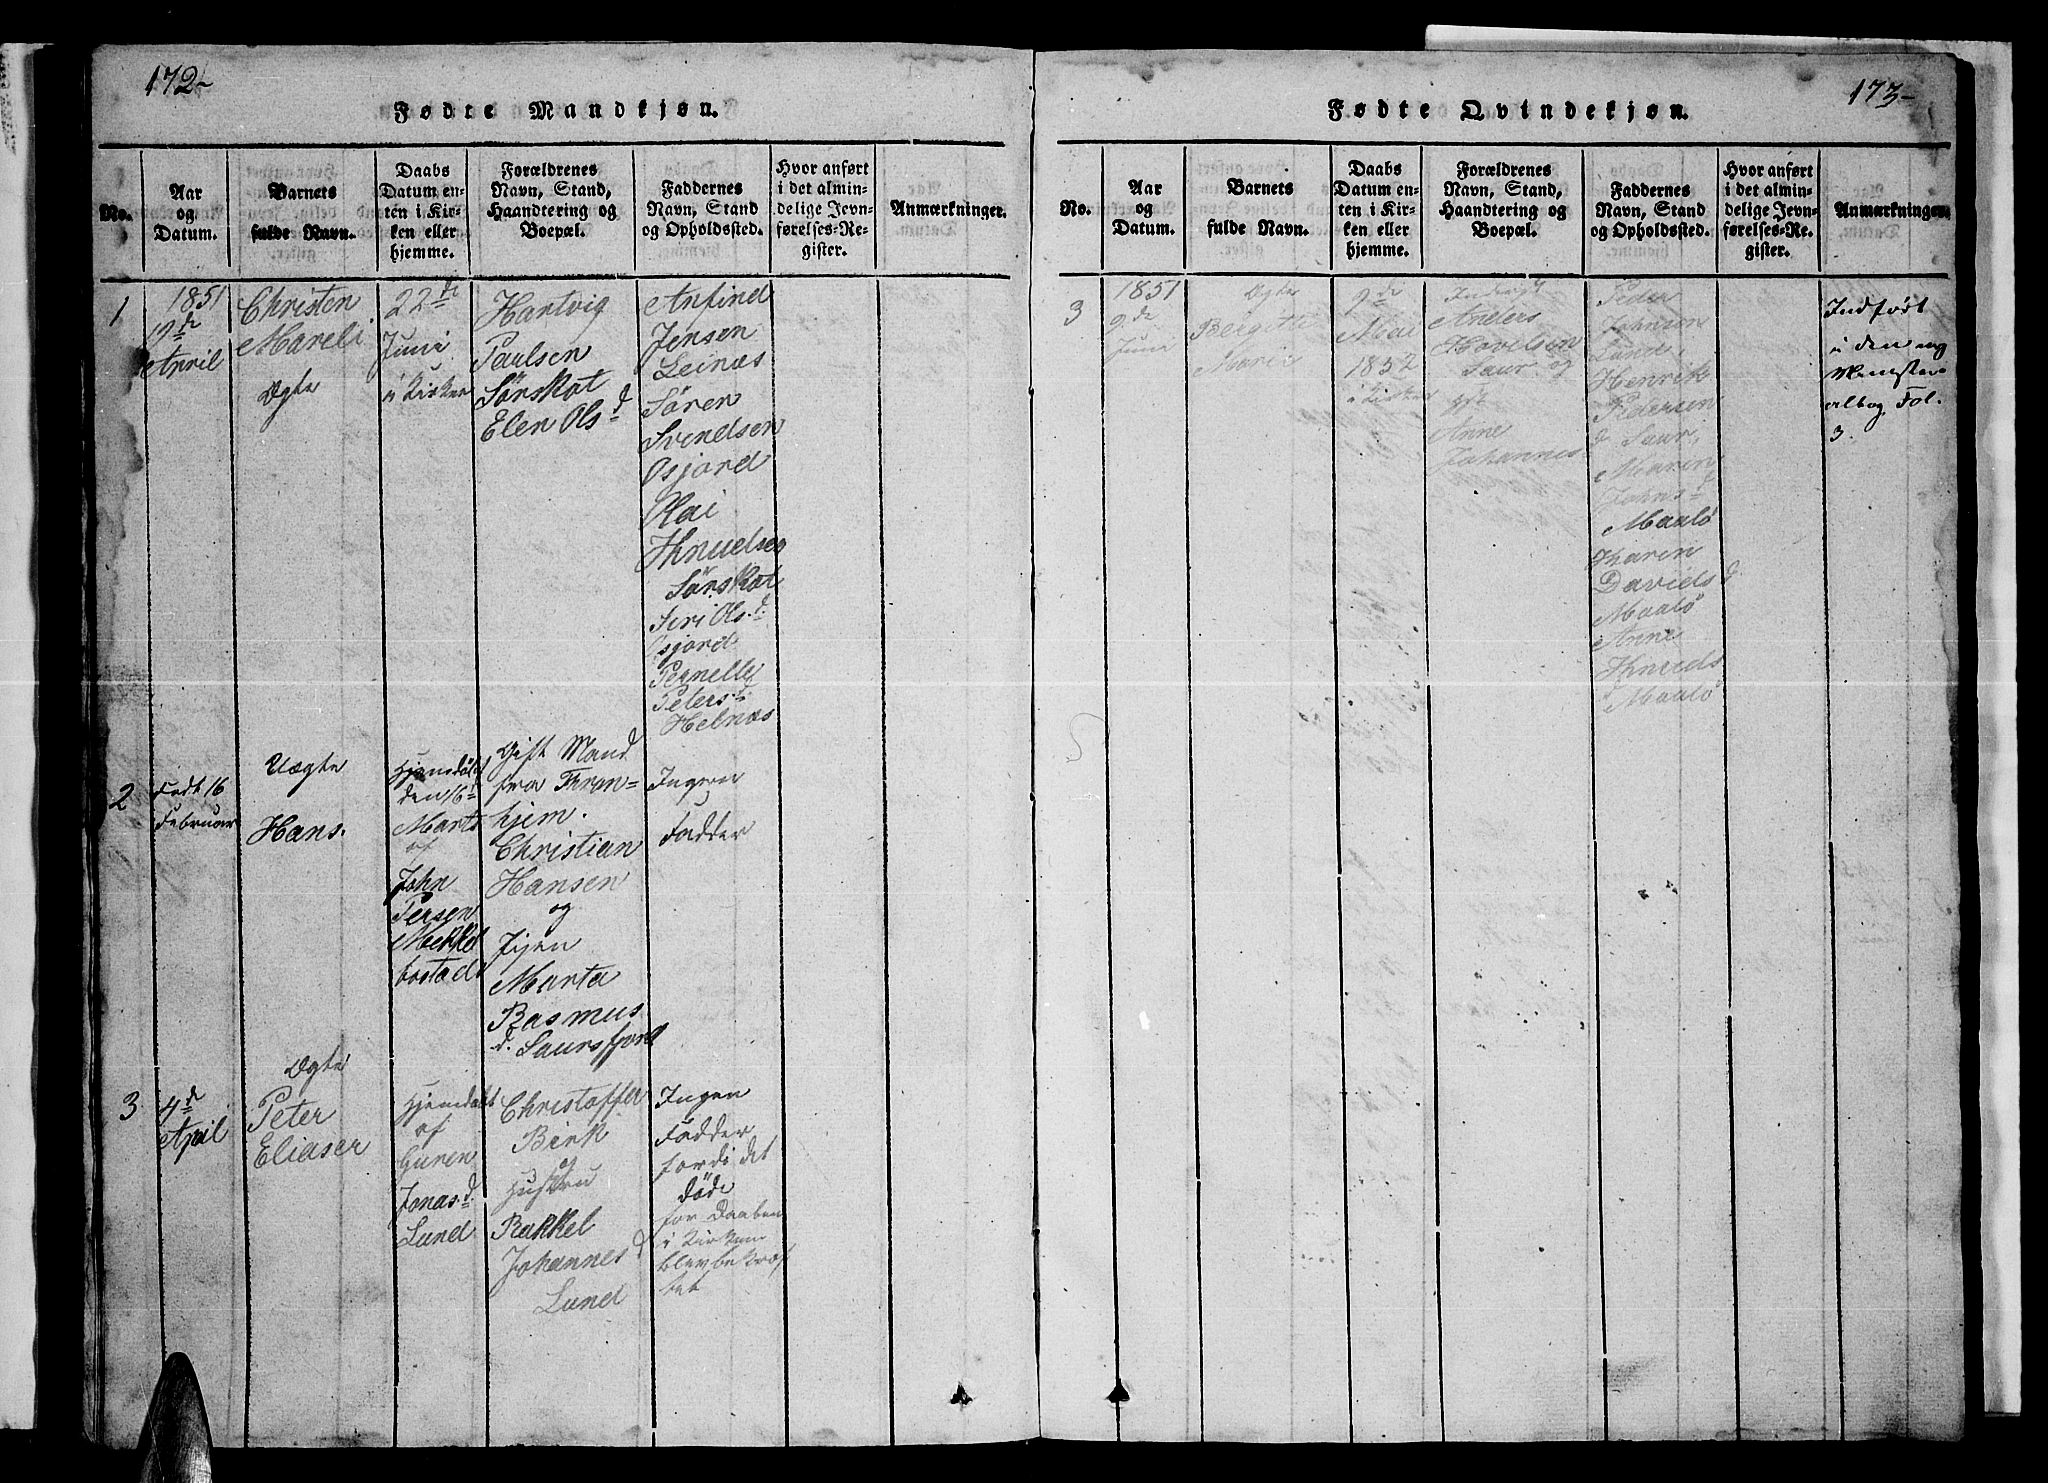 172-
Fødte Mandkjøn.
No.
Aar
og
Datum.
Barnets
fulde Navn.
Daabs
Datum en-
ten i Kir-
ken eller
hjemme.
Forældrenes
Navn, Stand,
Haandtering og
Boepæl.
Faddernes
Navn, Stand
og Opholdssted.
Hvor anført
i det almin-
delige Jevn-
førelses-Re-
gister.
Anmærkninger.
1
1851
19de
April
Christen
Mareli
Ægte
22de
Juni
i Kirken
Hartvig
Paulsen
Sörskat
Elen Olsd
Anfind
Jensen
Leinæs
Sören
Svendsen
Osjord
Olai
Knudsen
Sörskat
Siri Olsd.
Osjord
Pernelle
Petersd.
Helnæs
2
Født 16
Februar
Uægte
Hans.
Hjemdöbt
den 16d
Marts
af
John
Persen
Mekkel
bostad
Gift Mand
fra Thron-
hjem.
Christian
Hansen
og
Pigen
Marta
Rasmus
d. Saursfjord
Ingen
Fadder
3
4d
April
Ægte
Peter
Eliaser
Hjemdöbt
af
Guren
Jonasd.
Lund
Christoffer
Birk
og
Hustru
Rakkel
Johannesd
Lund
Ingen
Fadder
fordi det
döde
för Daaben
i Kirken
blev bekræf
tet
173-
Fødte Qvindekjøn.
No.
Aar
og
Datum.
Barnets
fulde Navn.
Daabs
Datum en-
ten i Kir-
ken eller
hjemme.
Forældrenes
Navn, Stand,
Haandtering og
Boepæl.
Faddernes
Navn, Stand
og Opholdssted.
Hvor anført
i det almin-
delige Jevn-
førelses-Re-
gister.
Anmærkninger.
3
1851
9de
Juni
Ægte
Bergitte
Marie
9de
Mai
1852
i Kirken
Anders
Hovelsen
Saur og
Anne
Johannes
Peder
Johnsen
Lund,
Henrik
Pedersen
Saur,
Maren
Johnsd
Maalö
Karen
Davidsd
Maalö
Anne
Knuds
d Maalö
Indført
i den ny
Ministeri
albog Fol.
3.